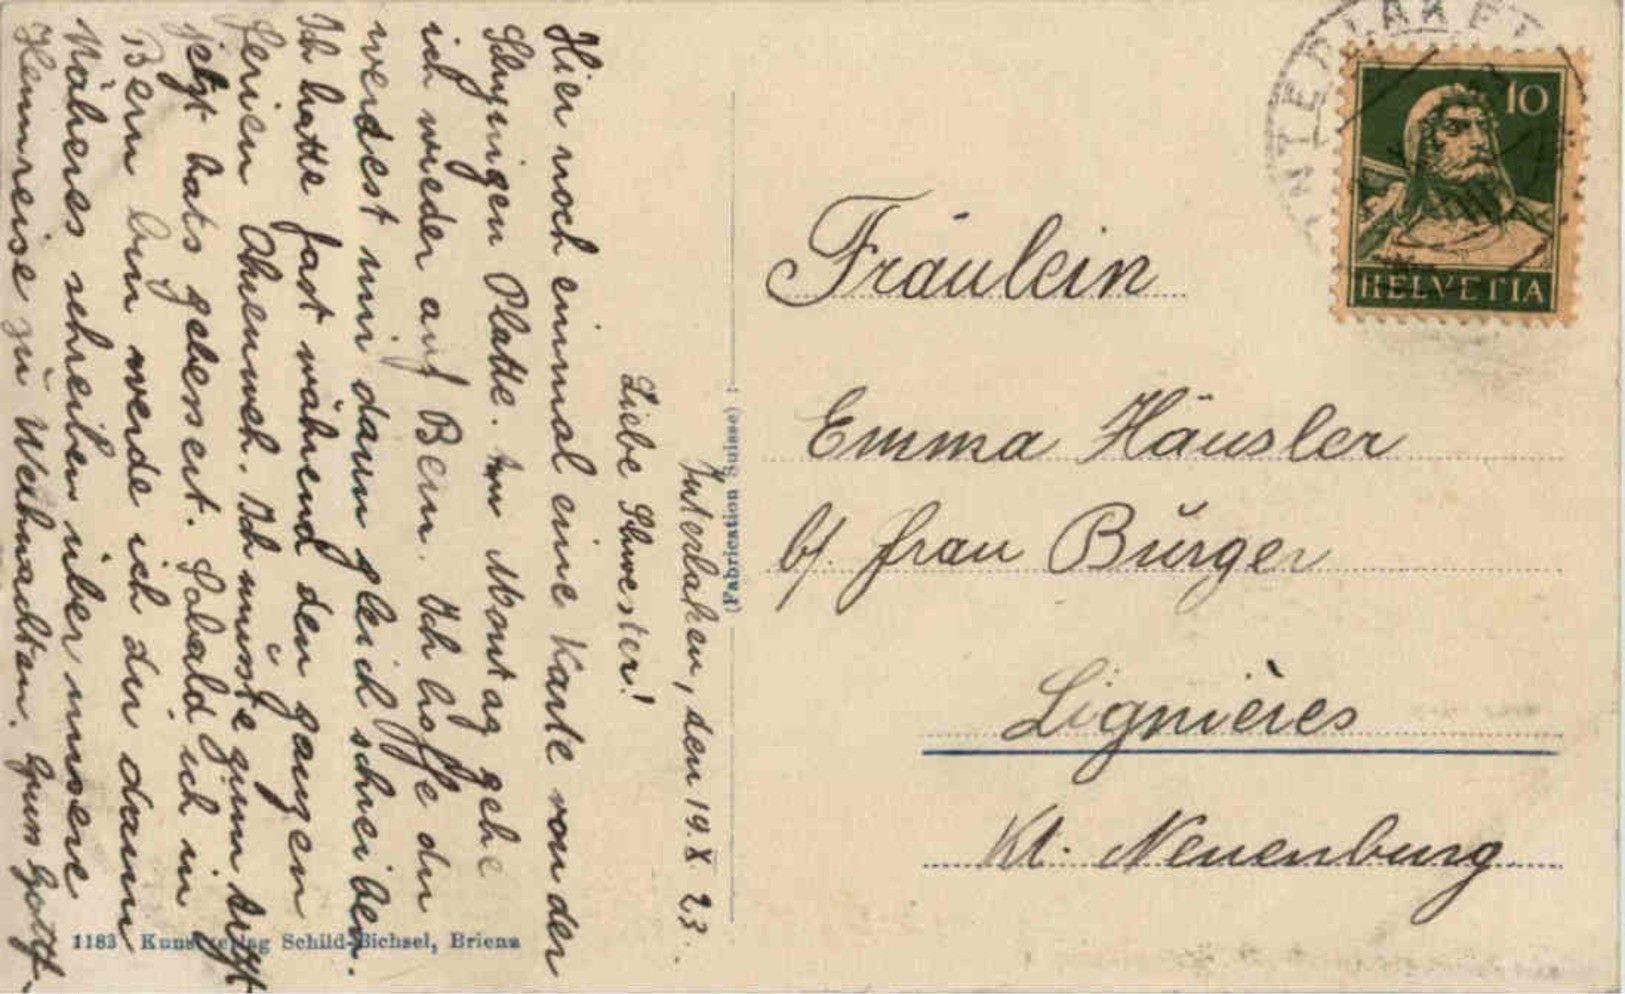 Interlaken, den 19. X 23.
Liebe Schwester!
Hier noch einmal eine Karte von der
Schynigen Platte. Am Montag gehe
ich wieder auf Bern. Ich hoffe du
werdest mir dann gleich schreiben.
Ich hatte fast während den ganzen
Ferien Ohrenweh. Ich musste zum Arzt
jetzt hats gebessert. Sobald ich in
Bern bin werde ich dir dann
Näheres schreiben über unsere
Heimreise zu Weihnachten. Gruss Gottf.
(Fabrication Suisse) :
1183 Kunstverlag Schild-Bichsel, Brienz
INTERLAKEN
10
HELVETIA
Fräulein
Emma Häusler
b/. Frau Burger
Lignières
Kt. Neuenburg